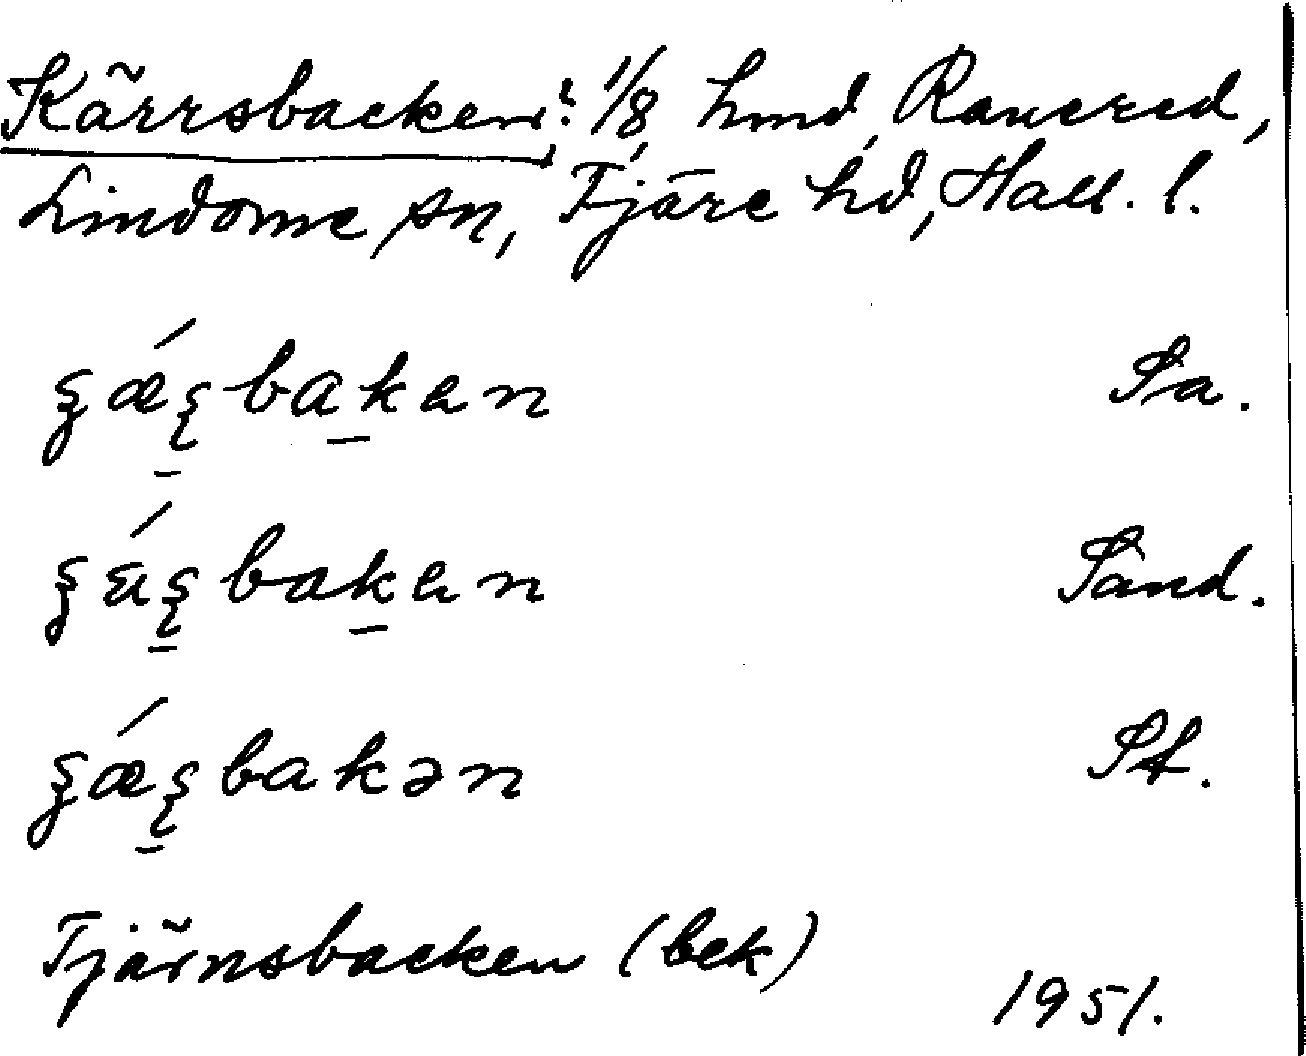 Kärrsbacken: 1/8 hmd Ranered,
Lindome sn, Fjäre hd, Hall. l.
bakan Sa.
bakan Sand.
bakən St.
Tjärnsbacken (bek)
1951.